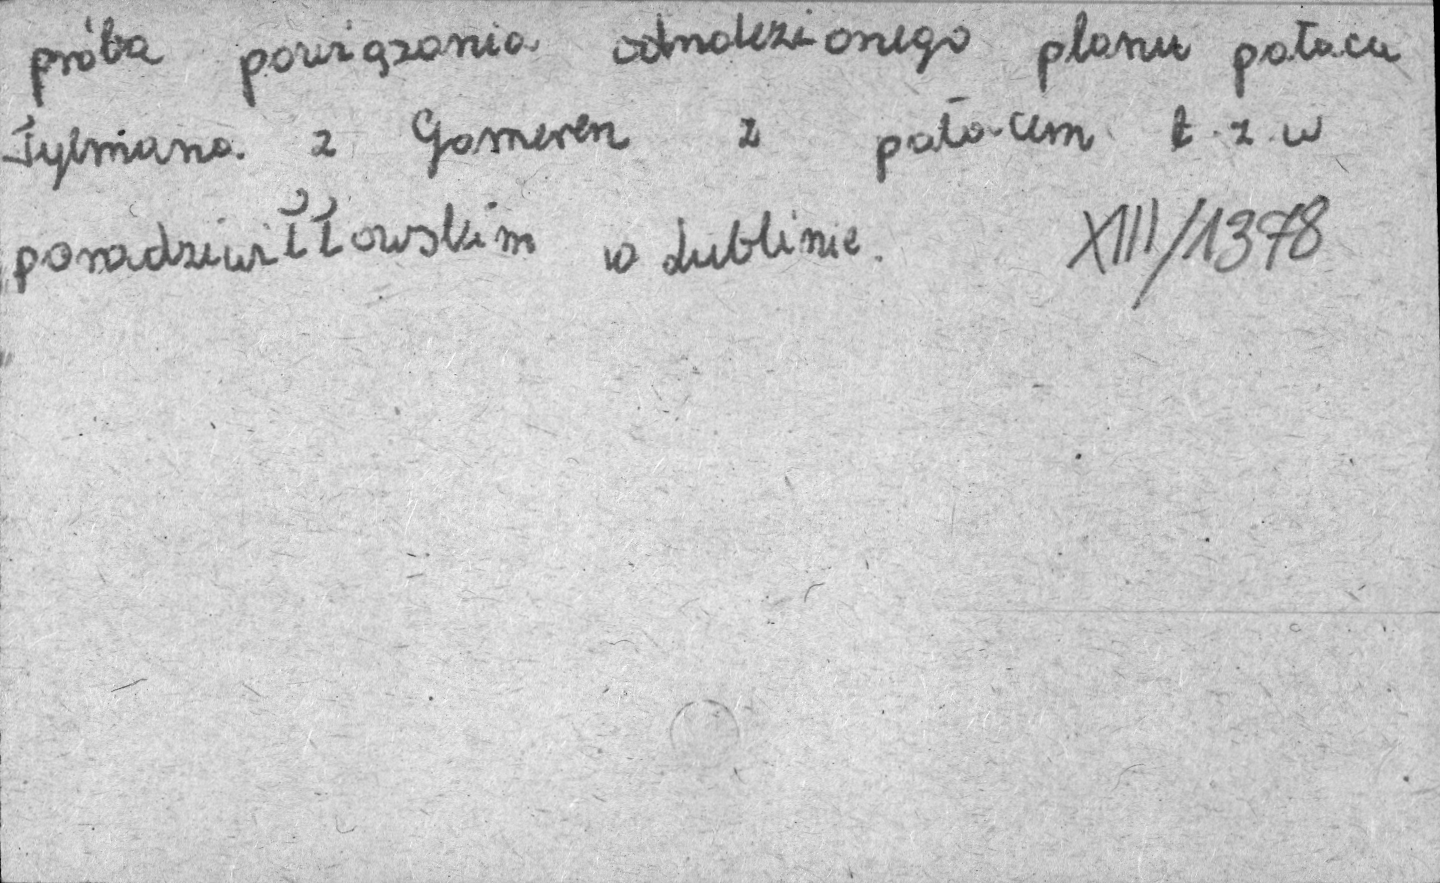 próba powiązania odnalezionego planu pałacu
Tylmana z Gameren z pałacem t.z.w
poradziwiłłowskim w Lublinie. XIII/1378